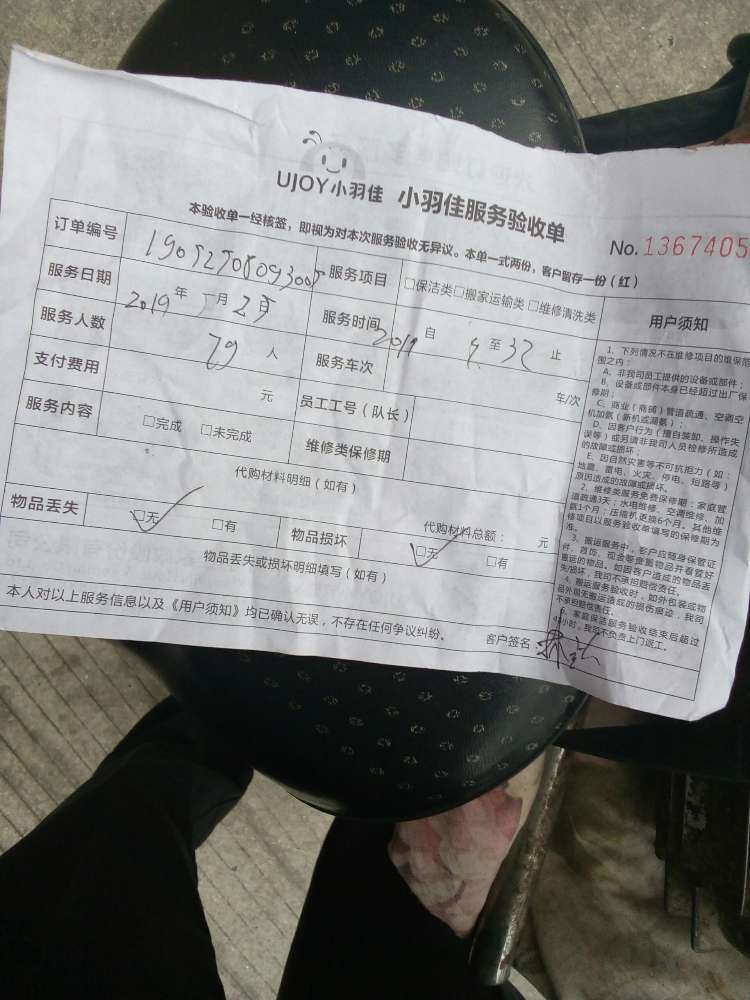 UJOY小羽佳 小羽佳服务验收单
本验收单一经核签，即视为对本次服务验收无异议。本单一式两份，客户留存一份（红）
No. 1367405
订单编号
服务项目 □保洁类□搬家运输类□维修清洗类
服务日期 2019年 月
服务时间 自 至 止
服务人数 人
服务车次 车/次
支付费用 元
员工工号（队长）
服务内容 □完成 □未完成
维修类保修期
代购材料明细（如有）
代购材料总额： 元
物品丢失 □无 □有
物品损坏 □无 □有
物品丢失或损坏明细填写（如有）
本人对以上服务信息以及《用户须知》均已确认无误，不存在任何争议纠纷。
客户签名：
用户须知
1、下列情况不在维修项目的维保范
围之内：
A、非我司员工提供的设备或部件；
B、设备或部件本身已经超过出厂保
修期；
C、商业（商铺）管道疏通、空调空
机加氟（新机或漏氟）；
D、因客户行为（擅自装卸、操作失
误等）或另请非我司人员检修所造成
的故障或损坏；
E、因自然灾害等不可抗拒力（如：
地震、雷电、火灾、停电、短路等）
原因造成的故障或损坏。
2、维修类服务免费保修期：家庭管
道疏通3天；水电维修、空调维修、加
氨1个月；压缩机更换6个月。其他维
修项目以服务验收单填写的保修期为
准。
3、搬运服务中，客户应随身保管证
件、首饰、现金等贵重物品并看管好
搬运的物品。如因客户造成的物品丢
失/损坏，我司不承担赔偿责任。
4、搬运服务验收时，如外包装或物
品外观无搬运造成的损伤痕迹，我司
不承担赔偿责任。
5、家庭保洁服务验收结束后超过
小时，我司不负责上门返工。